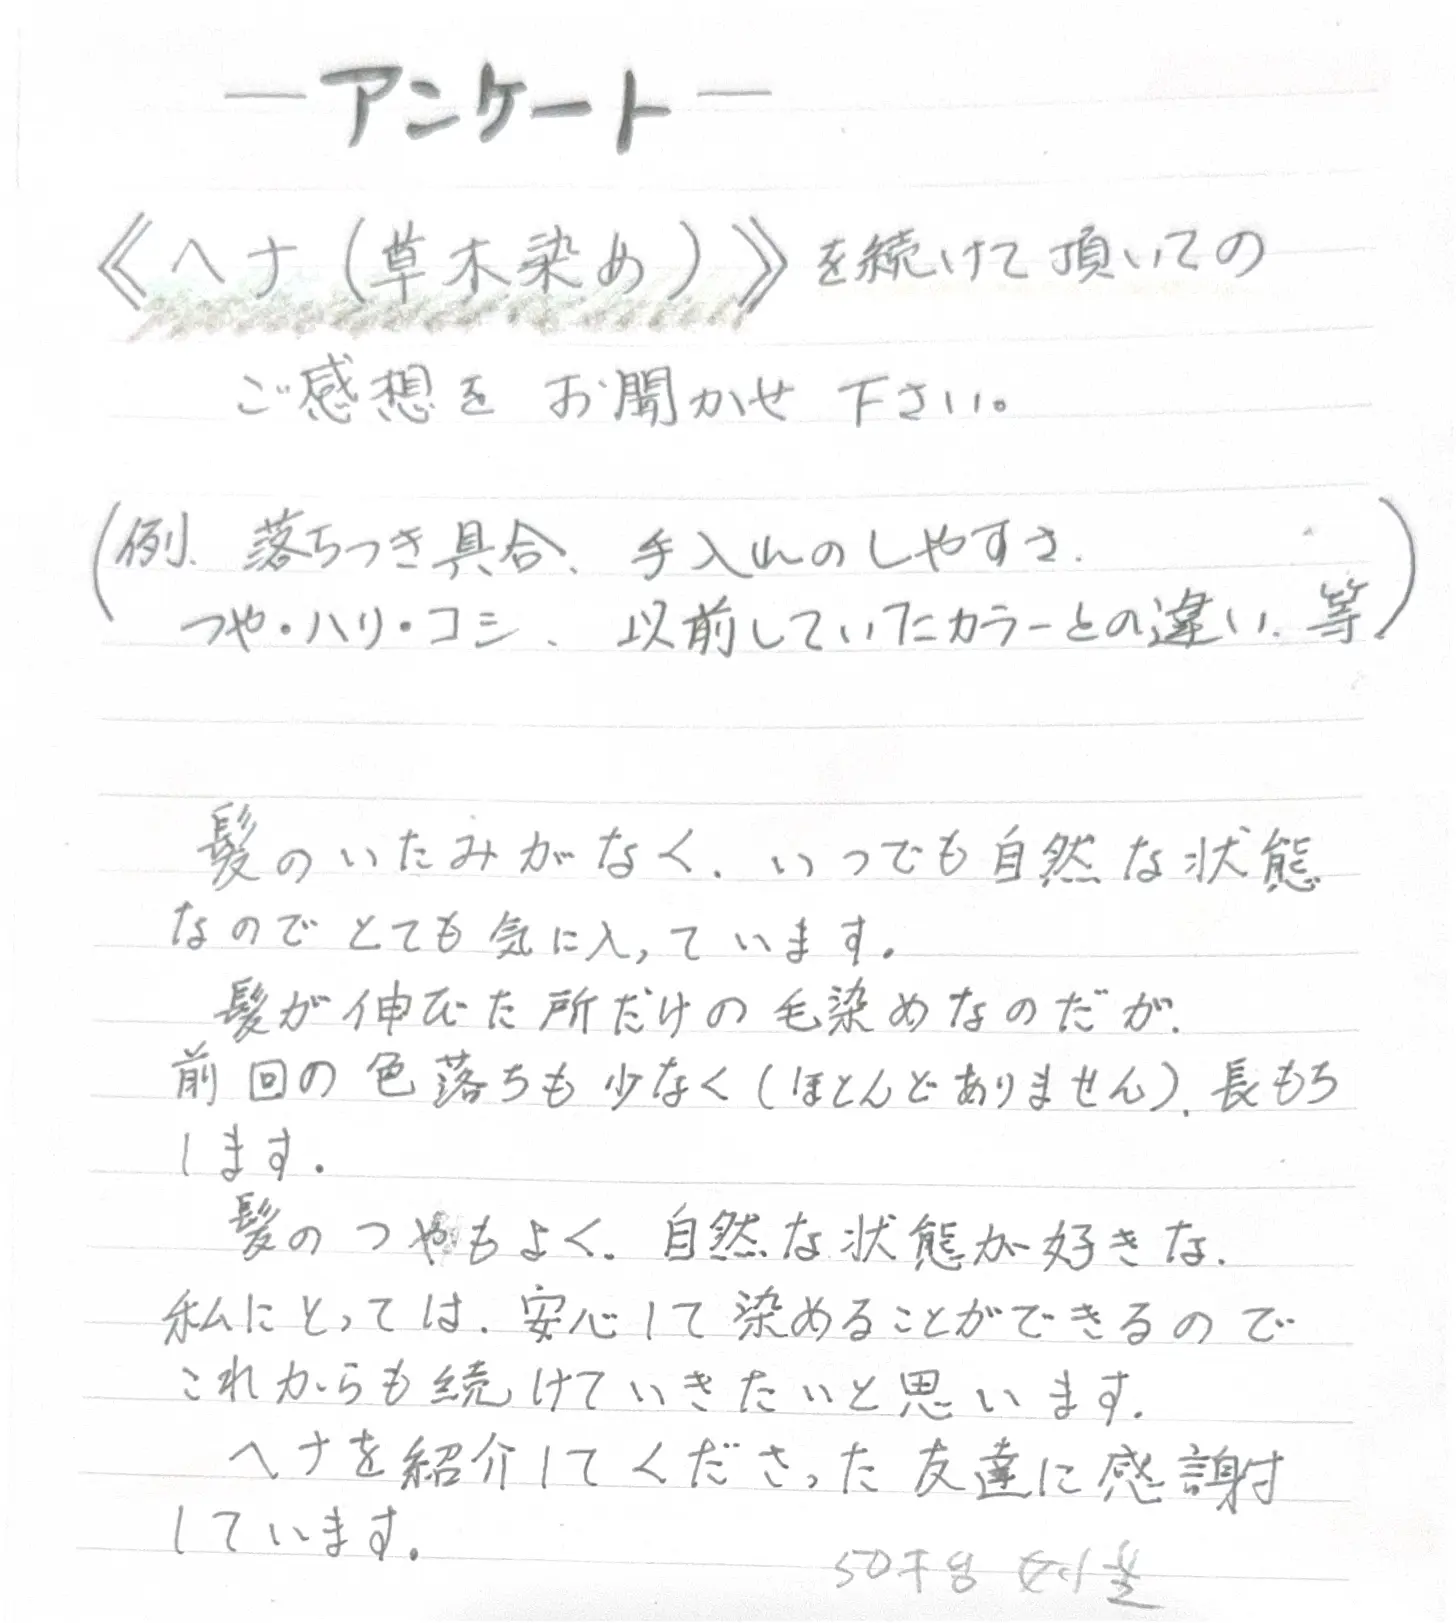 ーアンケートー
《ヘナ(草木染め)》を続けて頂いての
ご感想をお聞かせ下さい。
(例、落ちつき具合、手入れのしやすさ、
つや・ハリ・コシ、以前していたカラーとの違い、等)
髪のいたみがなく、いつでも自然な状態
なのでとても気に入っています。
髪が伸びた所だけの毛染めなのだが、
前回の色落ちも少なく(ほとんどありません)、長もち
します。
髪のつやもよく、自然な状態が好きな、
私にとっては、安心して染めることができるので
これからも続けていきたいと思います。
ヘナを紹介してくださった友達に感謝
しています。
50才台